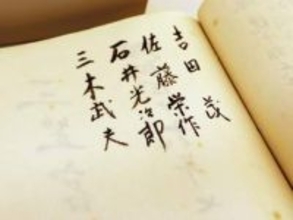 吉田茂
佐藤榮作
石井光次郎
三木武夫